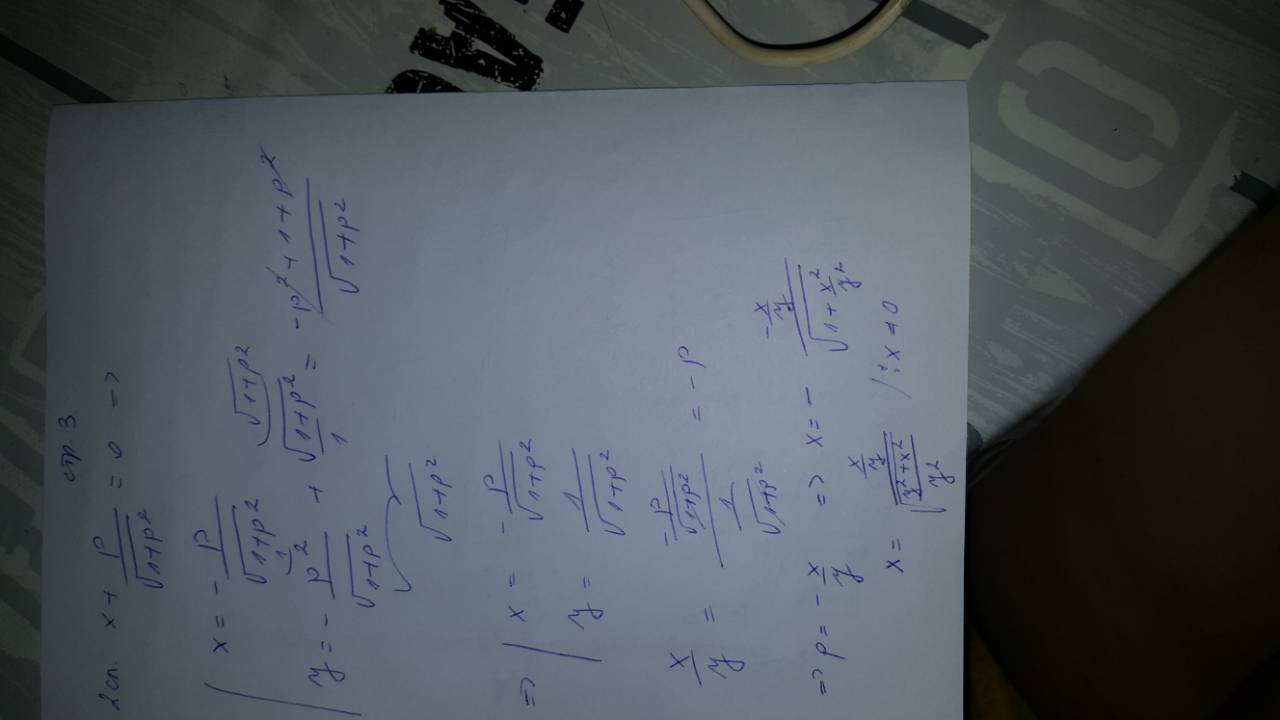 стр. 3
2 сл. x + p/√(1+p²) = 0 =>
x = - p/√(1+p²)
y = - p²/√(1+p²) + √(1+p²)/1 = (-p² + 1 + p²)/√(1+p²)
√(1+p²)
=> x = - p/√(1+p²)
y = 1/√(1+p²)
x/y = (-p/√(1+p²))/(1/√(1+p²)) = -p
=> p = - x/y => x = - (-x/y)/√(1 + x²/y²)
x = (x/y)/√((y²+x²)/y²) /: x ≠ 0